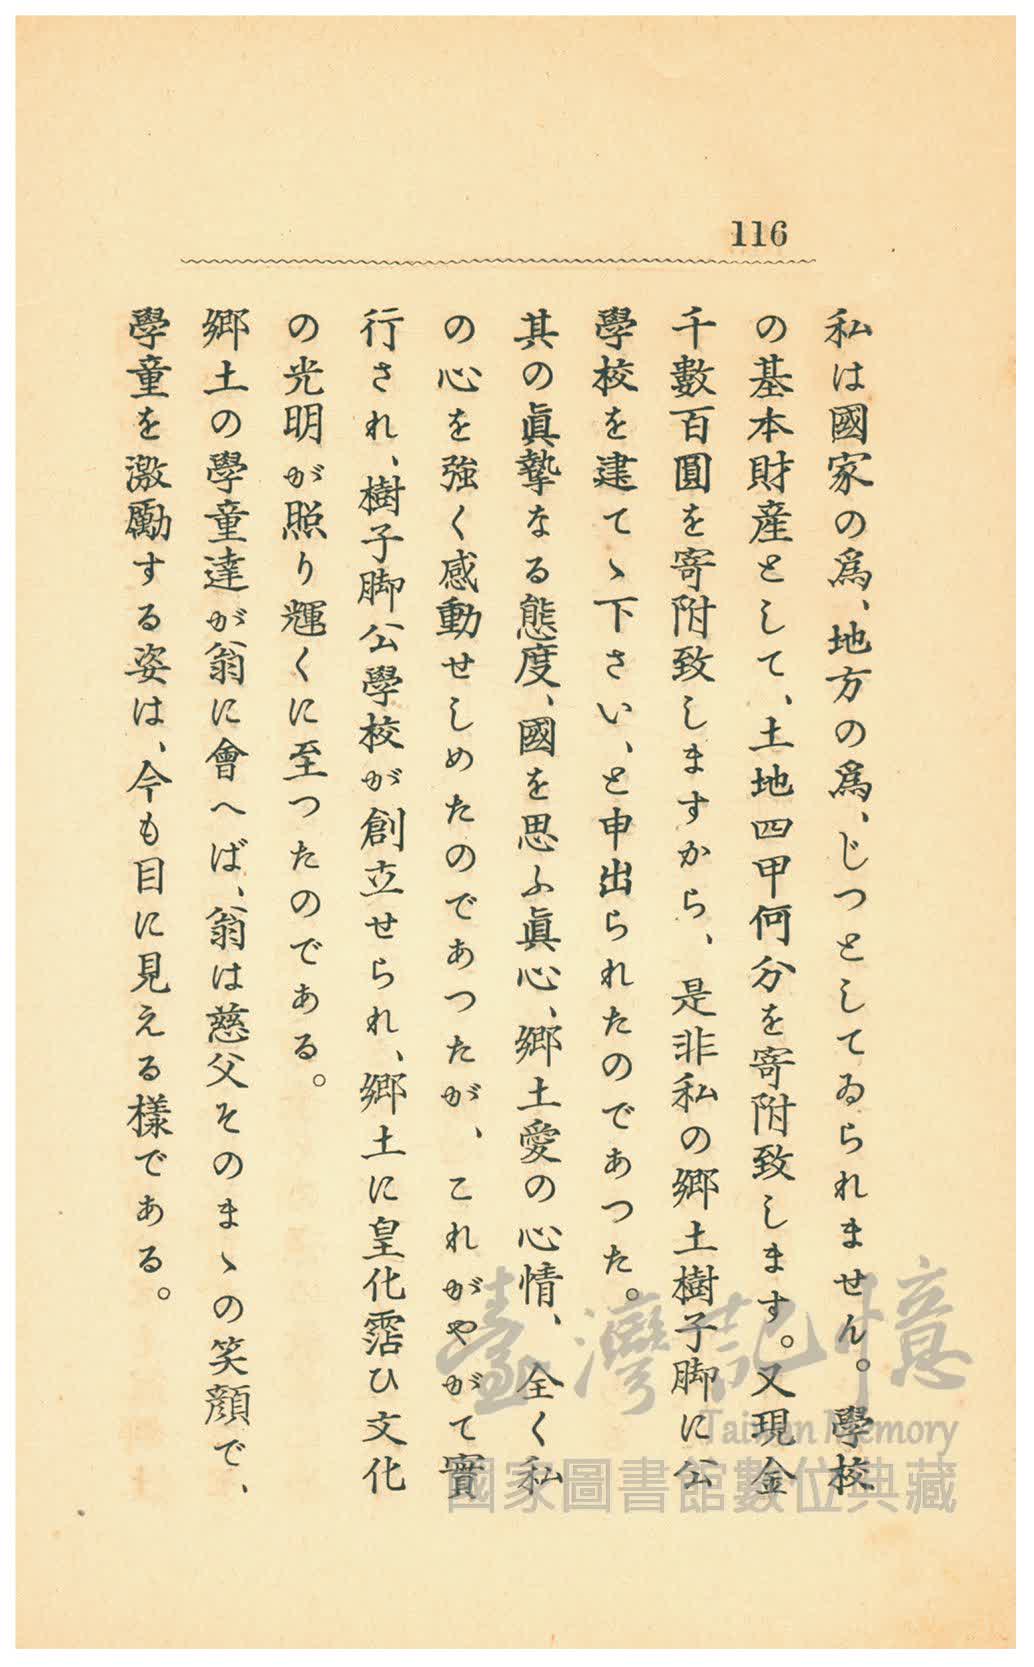 116
私は國家の爲、地方の爲、じつとしてゐられません。學校
の基本財產として、土地四甲何分を寄附致します。又現金
千數百圓を寄附致しますから、是非私の鄕土樹子脚に公
學校を建てゝ下さい、と申出られたのであつた。
其の眞摯なる態度、國を思ふ眞心、鄕土愛の心情、全く私
の心を強く感動せしめたのであつたが、これがやがて實
行され、樹子脚公學校が創立せられ、鄕土に皇化霑ひ文化
の光明が照り輝くに至つたのである。
鄕土の學童達が翁に會へば、翁は慈父そのまゝの笑顏で、
學童を激勵する姿は、今も目に見える樣である。
臺灣記憶
Taiwan Memory
國家圖書館數位典藏